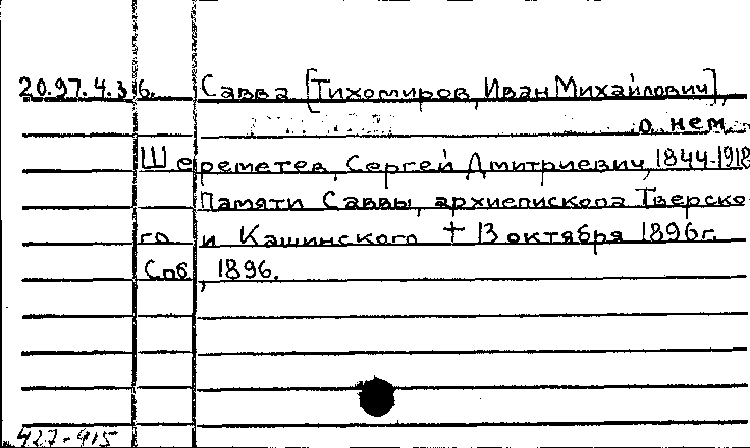 20.97.4.36. Савва [Тихомиров, Иван Михайлович],
о нем
Шереметев, Сергей Дмитриевич, 1844-1918
Памяти Саввы, архиепископа Тверско-
го и Кашинского † 13 октября 1896г.
Спб, 1896.
427-915